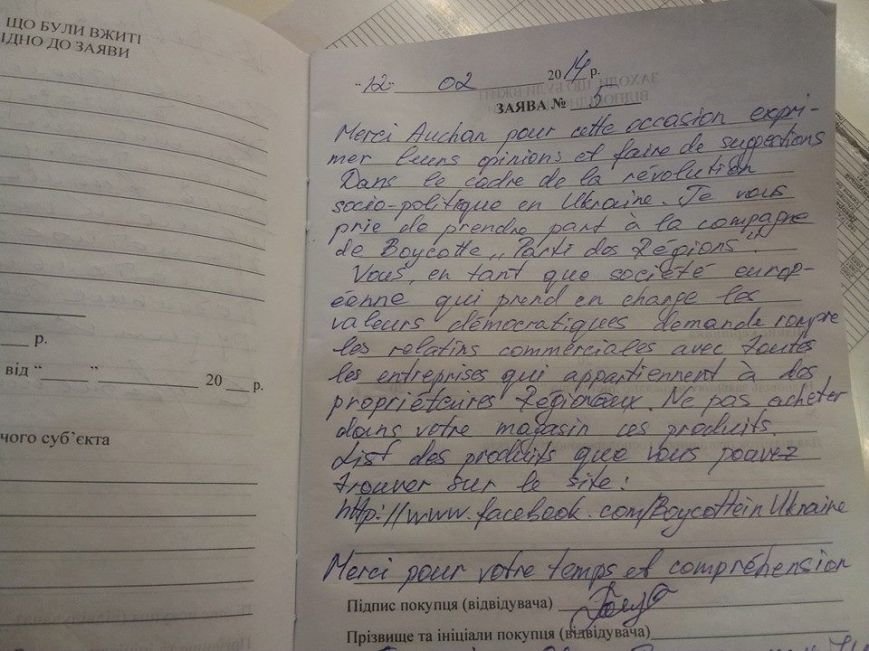 ЩО БУЛИ ВЖИТІ
ІДНО ДО ЗАЯВИ
р.
від “ ” 20 р.
чого суб`єкта
"12" 02 2014 р.
ЗАЯВА № 5
Merci Auchan pour cette occasion expri-
mer leurs opinions et faire de suggections
Dans le cadre de la révolution
socio-politique en Ukraine. Je vous
prie de prendre part à la compagne
de Boycotte „Parti des Régions"
Vous, en tant que société europ-
éenne qui prend en charge les
valeurs démocratiques demande rompre
les relatins commerciales avec toutes
les entreprises qui appartiennent à des
propriétaires Régionaux. Ne pas acheter
dans votre magasin ces produits.
List des produits que vous pouvez
trouver sur le site:
http://www.facebook.com/BoycotteinUkraine
Merci pour votre temps et compréhension
Підпис покупця (відвідувача)
Прізвище та ініціали покупця (відвідувача)